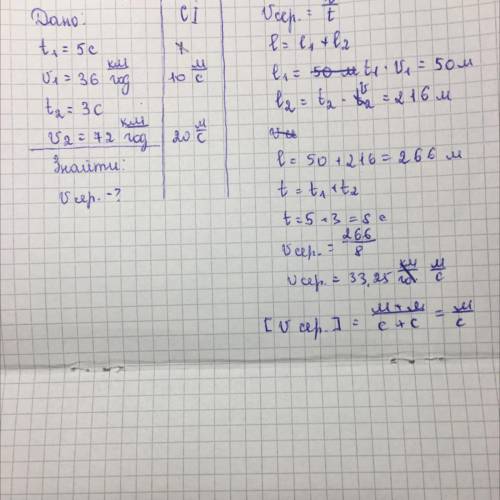 Дано:
t₁ = 5 с
v₁ = 36 км/год
t₂ = 3 с
v₂ = 72 км/год
Знайти:
v сер. - ?
СІ
10 м/с
20 м/с
v сер. = l/t
l = l₁ + l₂
l₁ = 50 м t₁ · v₁ = 50 м
l₂ = t₂ · v₂ = 216 м
l = 50 + 216 = 266 м
t = t₁ + t₂
t = 5 + 3 = 8 с
v сер. = 266/8
v сер. = 33,25 км/год м/с
[v сер.] = м + м/с + с = м/с